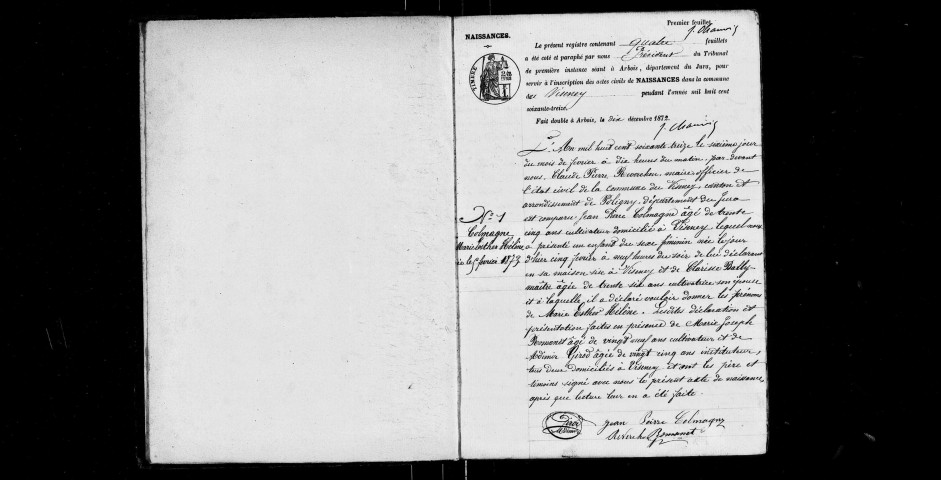 Premier feuillet.
J. Chauvin
NAISSANCES.
TIMBRE
Le présent registre contenant quatre feuillets
a été coté et paraphé par nous Président du Tribunal
de première instance séant à Arbois, département du Jura, pour
servir à l'inscription des actes civils de NAISSANCES dans la commune
de Visney pendant l'année mil huit cent
soixante-treize.
Fait double à Arbois, le dix décembre 1872.
J. Chauvin
L'An mil huit cent soixante treize le sixième jour
du mois de février à dix heures du matin, par devant
nous, Claude Pierre Reverchon, maire officier de
l'état civil de la commune du Visney, canton et
arrondissement de Poligny, département du Jura
est comparu Jean Pierre Colmagne âgé de trente
cinq ans cultivateur domicilié à Visney lequel nous
à présenté un enfant du sexe féminin née le jour
d'hier cinq février à neuf heures du soir de lui déclarant
en sa maison sise à Visney et de Clarisse Bailly-
maître âgée de trente six ans cultivatrice son épouse
et à laquelle il a déclaré vouloir donner les prénoms
de Marie Esther Hélène. Lesdites déclaration et
présentation faites en présence de Marie Joseph
Romanet âgé de vingt neuf ans cultivateur et de
Girod âgé de vingt cinq ans instituteur,
tous deux domiciliés à Visney et ont les père et
témoins signé avec nous le présent acte de naissance
après que lecture leur en a été faite.
N° 1
Colmagne
Marie Esther Hélène
née le 5 février 1873
Girod
Jean Pierre Colmagne
Reverchon Romanet